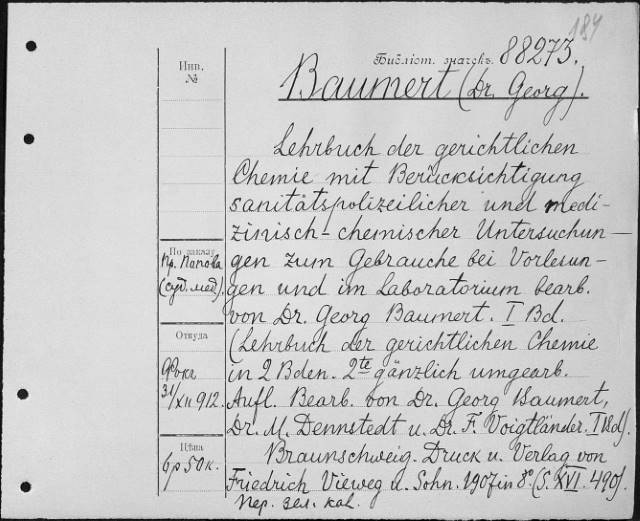 184
Библіот. значекъ 88273.
Инв.
№
Baumert (Dr. Georg).
Lehrbuch der gerichtlichen
Chemie mit Berücksichtigung
sanitätspolizeilicher und medi-
zinisch-chemischer Untersuchun-
gen zum Gebrauche bei Vorlesun-
gen und im Laboratorium bearb.
von Dr. Georg Baumert. I Bd.
(Lehrbuch der gerichtlichen Chemie
in 2 Bden. 2te gänzlich umgearb.
Aufl. Bearb. von Dr. Georg Baumert,
Dr. M. Dennstedt u. Dr. F. Voigtländer. I Bd).
Braunschweig. Druck u. Verlag von
Friedrich Vieweg u. Sohn. 1907 in 8º. (S. XVI. 490).
Пер. зел. кал.
По заказу
Пр. Попова
(суд. мед).
Откуда
31/XII 912.
Цѣна
6 р 50 к.